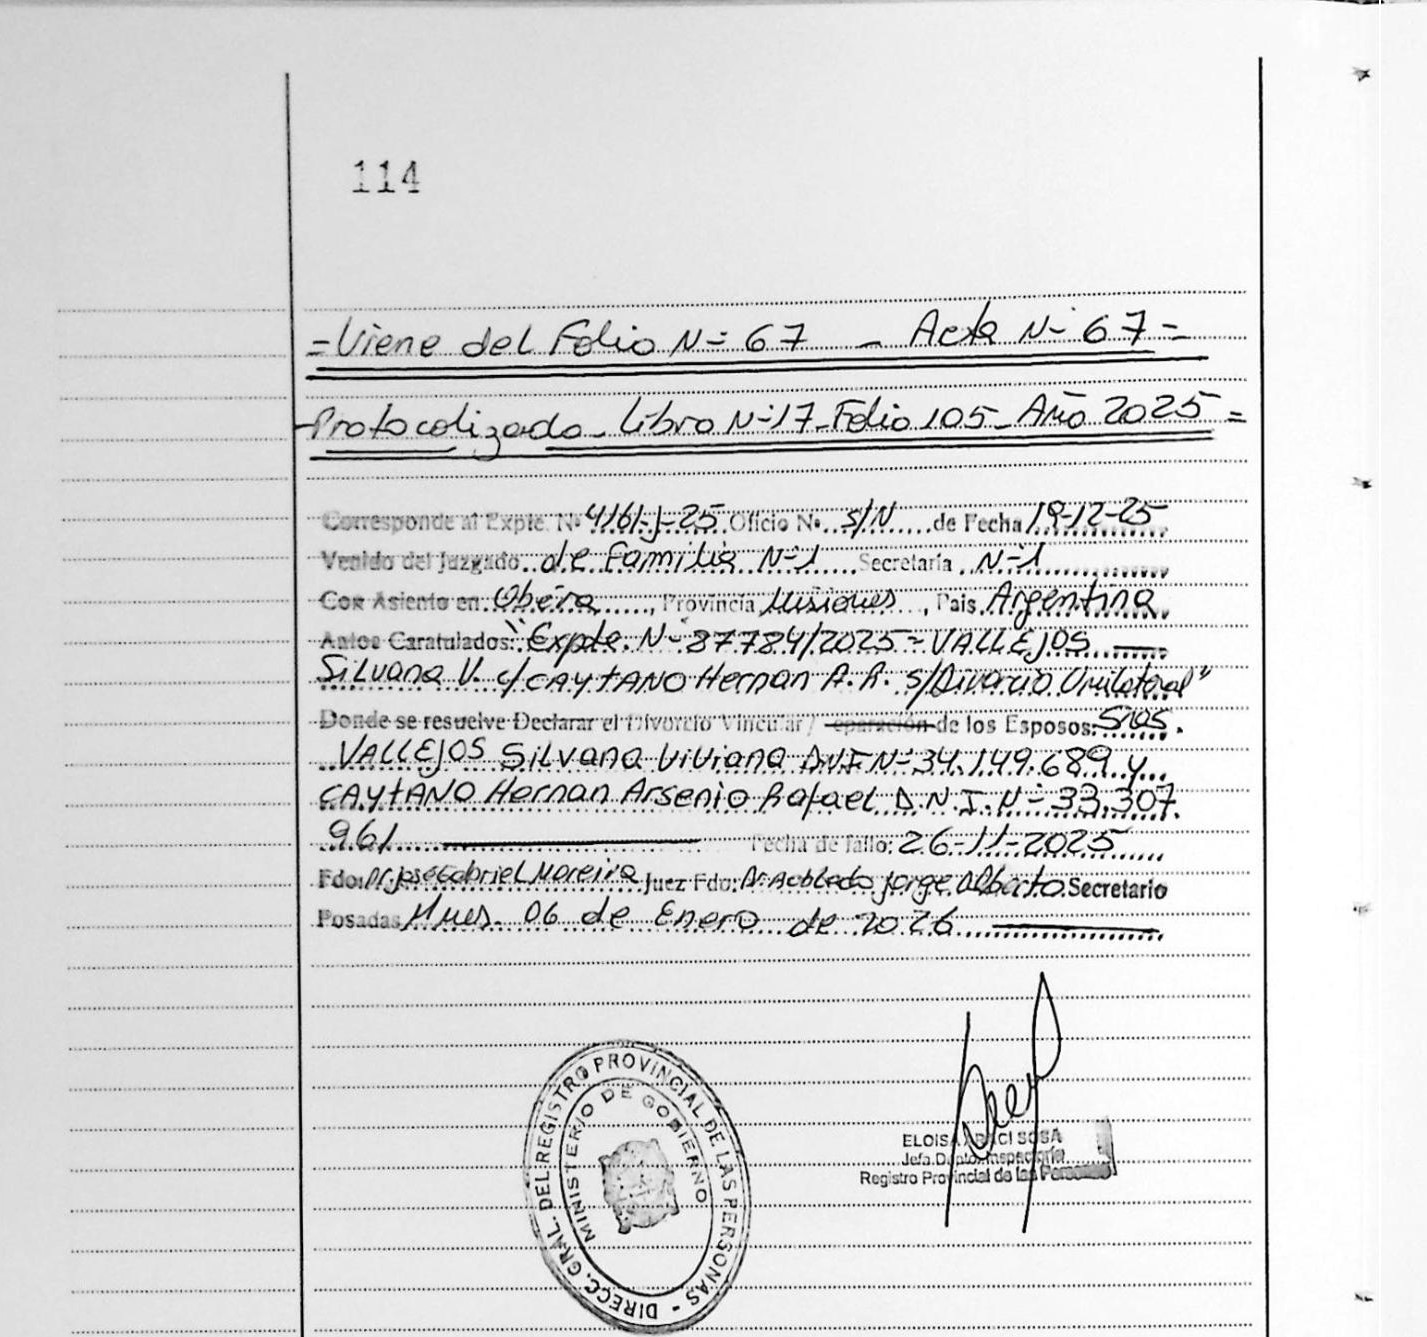 114
=Viene del Folio N- 67 - Acta N- 67=
-Protocolizado- Libro N-17-Folio 105- Año 2025=
Corresponde al Expte. Nº 4161-J-25 Oficio Nº S/N de Fecha 19-12-25
Venido del Juzgado de Familia N-1 Secretaría N-1
Con Asiento en Oberá, Provincia Misiones, País Argentina
Autos Caratulados: "Expte. N- 87784/2025- VALLEJOS
Silvana V. c/ CAYTANO Hernan A. R. s/Divorcio Unilateral"
Donde se resuelve Declarar el Divorcio Vincular / eparación de los Esposos: Sres.
VALLEJOS Silvana Viviana D.N.I N- 34.149.689 y
CAYTANO Hernan Arsenio Rafael D.N.I. N- 33.307.
961 Fecha de fallo: 26-11-2025
Fdo: Dr. José Gabriel Moreira Juez Fdo: Dr Robledo Jorge Alberto Secretario
Posadas, Mnes. 06 de Enero de 2026
DIRECC. GRAL. DEL REGISTRO PROVINCIAL DE LAS PERSONAS -
MINISTERIO DE GOBIERNO
ELOISA ARACI SOSA
Jefa Dpto. Inspectoría
Registro Provincial de las Personas